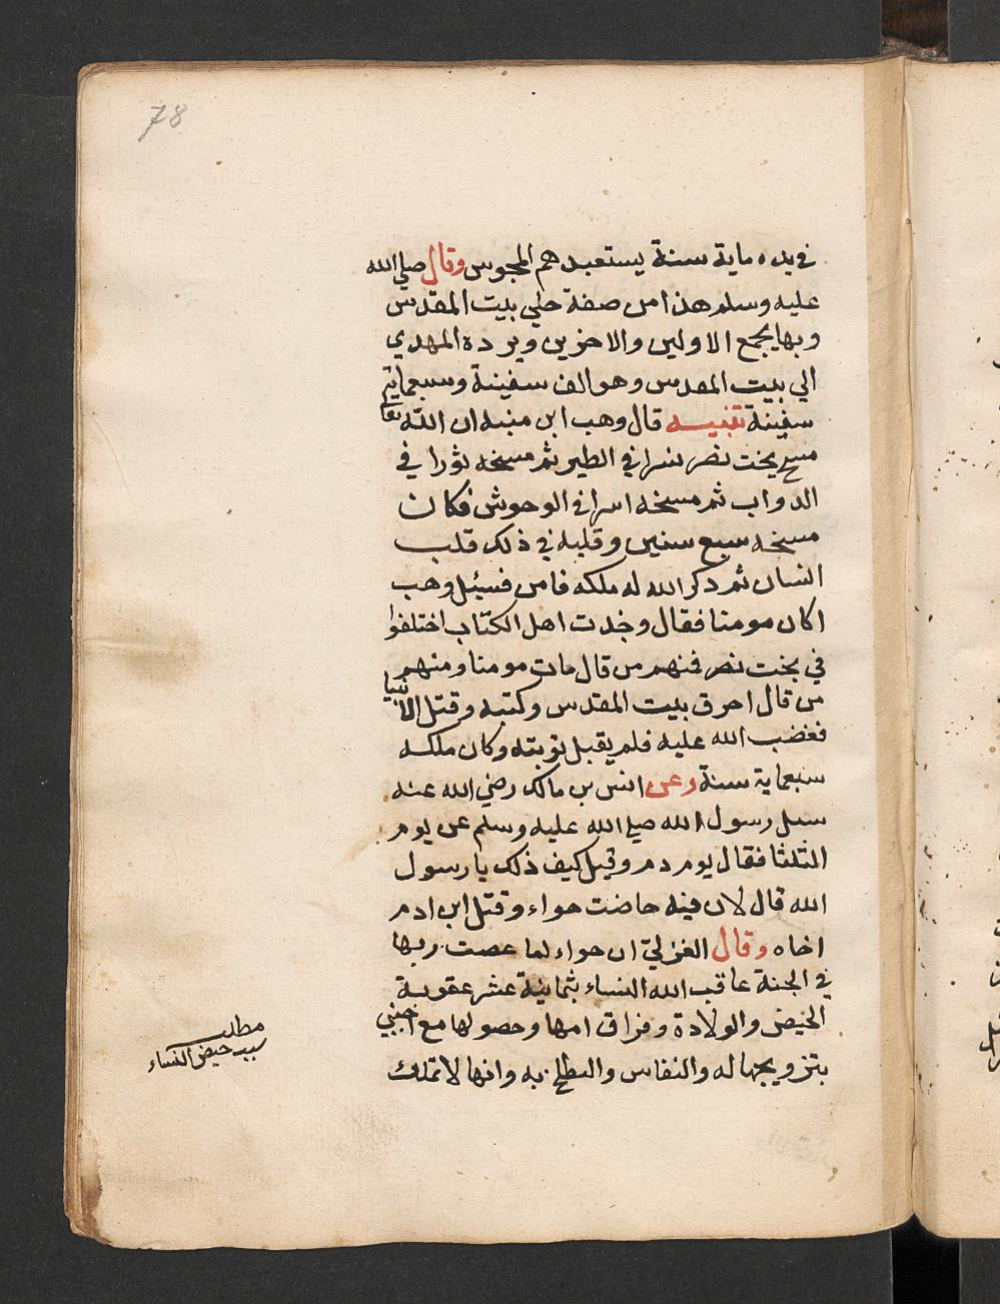 78
في يده ماية سنة يستعبدهم المجوس وقال صلي الله
عليه وسلم هذا من صفة حلي بيت المقدس
وبها يجمع الاولين والاخرين ويرده المهدي
الي بيت المقدس وهو الف سفينة وسبعماية
سفينة تنبيه قال وهب ابن منبه ان الله تعا
مسخ بخت نصر نسرا في الطير ثم مسخه ثورا في
الدواب ثم مسخه اسرا في الوحوش فكان
مسخه سبع سنين وقلبه في ذلك قلب
انسان ثم ذكر الله له ملكه فامن فسيئل وهب
اكان مومنا فقال وجدت اهل الكتاب اختلفوا
في بخت نصر فمنهم من قال مات مومنا ومنهم
من قال احرق بيت المقدس وكتبه وقتل الانبيا
فغضب الله عليه فلم يقبل توبته وكان ملكه
سبعماية سنة وعن انس بن مالك رضي الله عنه
سيل رسول الله صلي الله عليه وسلم عن يوم
الثلثا فقال يوم دم وقيل كيف ذلك يا رسول
الله قال لان فيه حاضت حواء وقتل ابن ادم
اخاه وقال الغزلي ان حواء لما عصت ربها
في الجنة عاقب الله النساء بثمانية عشر عقوبة
الحيض والولادة وفراق امها وحصولها مع اجنبي
بتزويجها له والنفاس والتطلخ به وانها لا تملك
مطلب
سبب حيض النساء